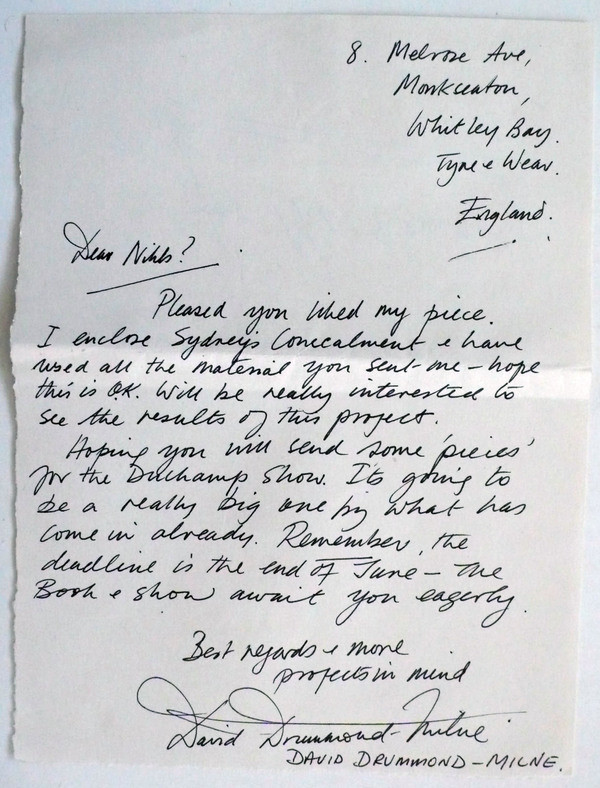 8. Melrose Ave,
Monkseaton,
Whitley Bay.
Tyne & Wear.
England.
Dear Niels?
Pleased you liked my piece.
I enclose Sydney's Concealment & have
used all the material you sent me – hope
this is OK. Will be really interested to
see the results of this project.
Hoping you will send some 'pieces'
for the Duchamp Show. It's going to
be a really big one by what has
come in already. Remember, the
deadline is the end of June – the
Book & show await you eagerly.
Best regards & more
projects in mind
David Drummond-Milne
DAVID DRUMMOND – MILNE.